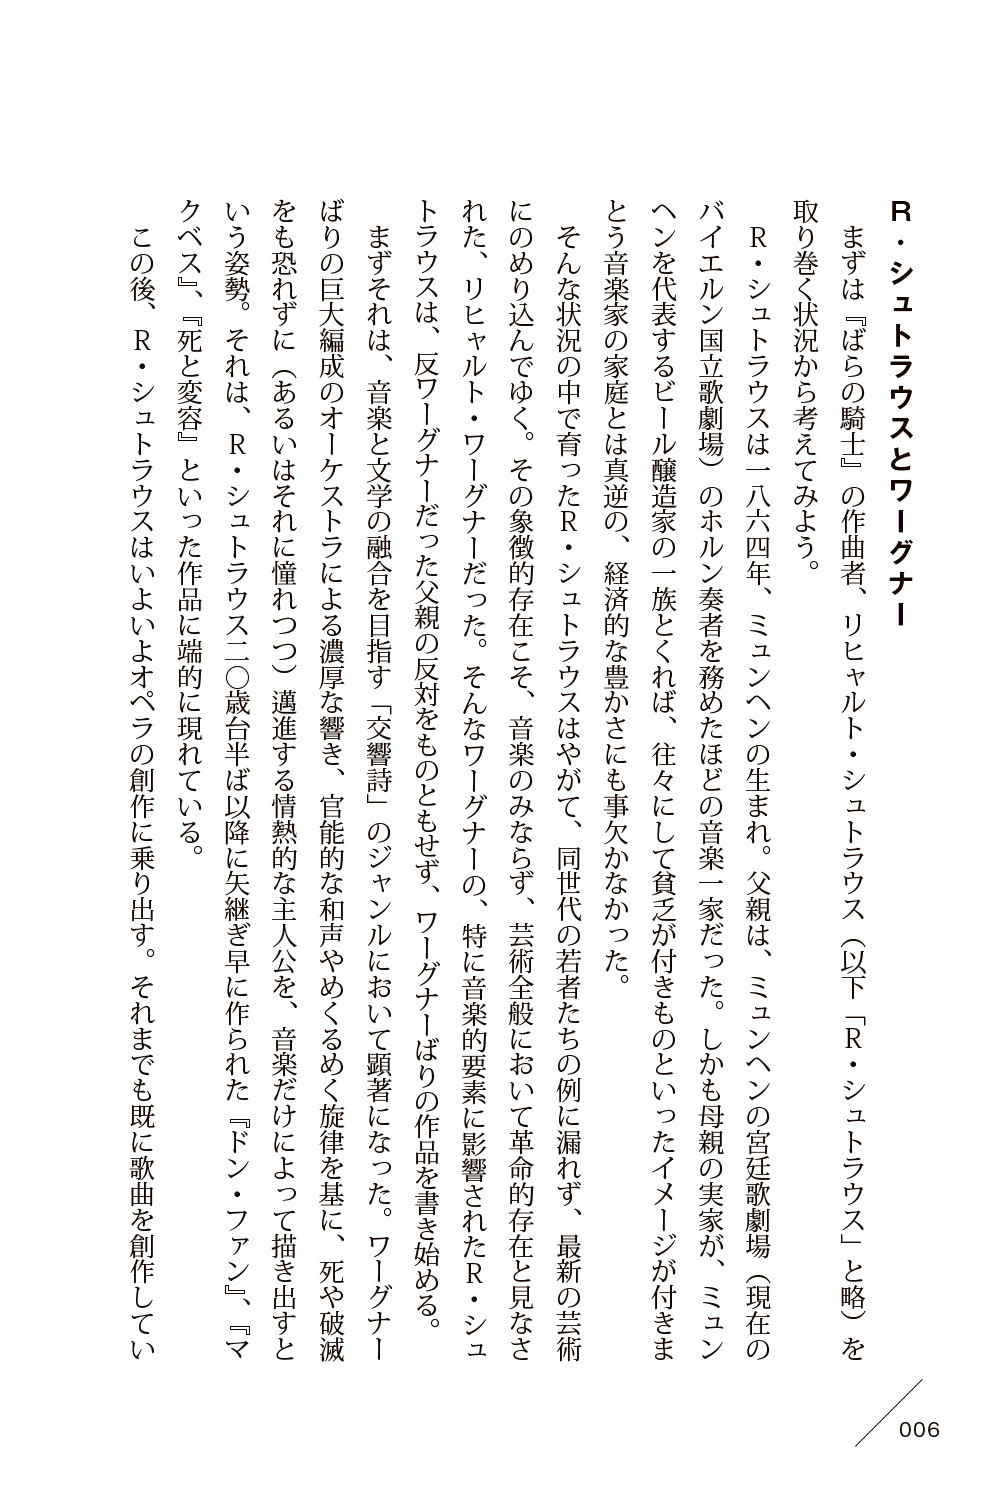 R・シュトラウスとワーグナー
まずは『ばらの騎士』の作曲者、リヒャルト・シュトラウス（以下「R・シュトラウス」と略）を
取り巻く状況から考えてみよう。
R・シュトラウスは一八六四年、ミュンヘンの生まれ。父親は、ミュンヘンの宮廷歌劇場（現在の
バイエルン国立歌劇場）のホルン奏者を務めたほどの音楽一家だった。しかも母親の実家が、ミュン
ヘンを代表するビール醸造家の一族とくれば、往々にして貧乏が付きものといったイメージが付きま
とう音楽家の家庭とは真逆の、経済的な豊かさにも事欠かなかった。
そんな状況の中で育ったR・シュトラウスはやがて、同世代の若者たちの例に漏れず、最新の芸術
にのめり込んでゆく。その象徴的存在こそ、音楽のみならず、芸術全般において革命的存在と見なさ
れた、リヒャルト・ワーグナーだった。そんなワーグナーの、特に音楽的要素に影響されたR・シュ
トラウスは、反ワーグナーだった父親の反対をものともせず、ワーグナーばりの作品を書き始める。
まずそれは、音楽と文学の融合を目指す「交響詩」のジャンルにおいて顕著になった。ワーグナー
ばりの巨大編成のオーケストラによる濃厚な響き、官能的な和声やめくるめく旋律を基に、死や破滅
をも恐れずに（あるいはそれに憧れつつ）邁進する情熱的な主人公を、音楽だけによって描き出すと
いう姿勢。それは、R・シュトラウス二〇歳台半ば以降に矢継ぎ早に作られた『ドン・ファン』、『マ
クベス』、『死と変容』といった作品に端的に現れている。
この後、R・シュトラウスはいよいよオペラの創作に乗り出す。それまでも既に歌曲を創作してい
006